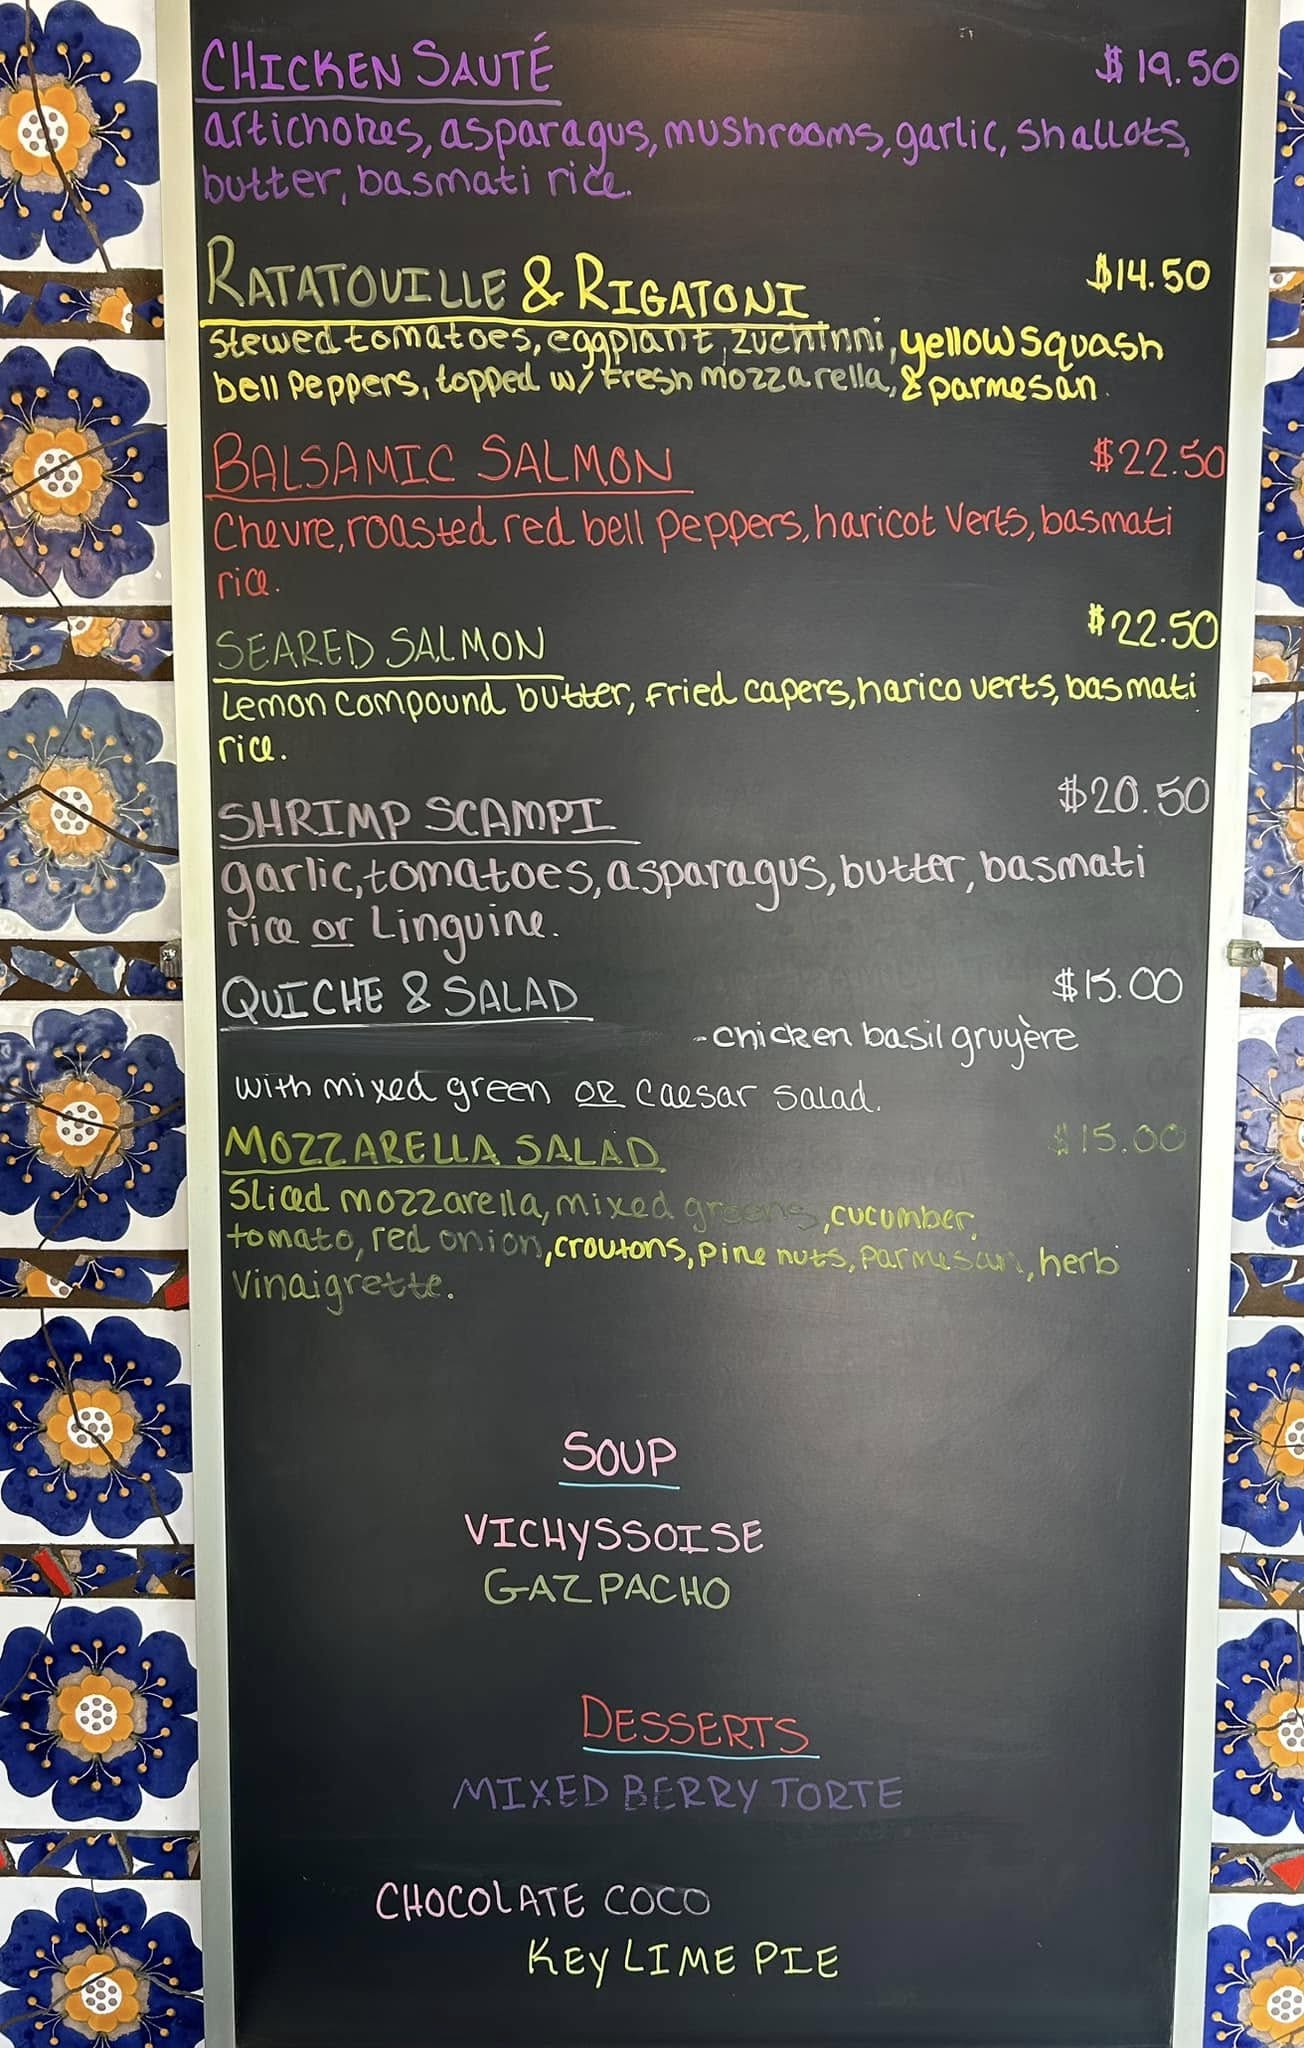 CHICKEN SAUTÉ $19.50
artichokes, asparagus, mushrooms, garlic, shallots,
butter, basmati rice.
RATATOUILLE & RIGATONI $14.50
stewed tomatoes, eggplant, zuchinni, yellow squash
bell peppers, topped w/ fresh mozzarella, & parmesan.
BALSAMIC SALMON $22.50
Chevre, roasted red bell peppers, haricot verts, basmati
rice.
SEARED SALMON $22.50
Lemon compound butter, fried capers, harico verts, basmati
rice.
SHRIMP SCAMPI $20.50
garlic, tomatoes, asparagus, butter, basmati
rice or Linguine.
QUICHE & SALAD $15.00
-chicken basil gruyère
with mixed green OR caesar salad.
MOZZARELLA SALAD $15.00
Sliced mozzarella, mixed greens, cucumber,
tomato, red onion, croutons, pine nuts, parmesan, herb
vinaigrette.
SOUP
VICHYSSOISE
GAZPACHO
DESSERTS
MIXED BERRY TORTE
CHOCOLATE COCO
KEY LIME PIE